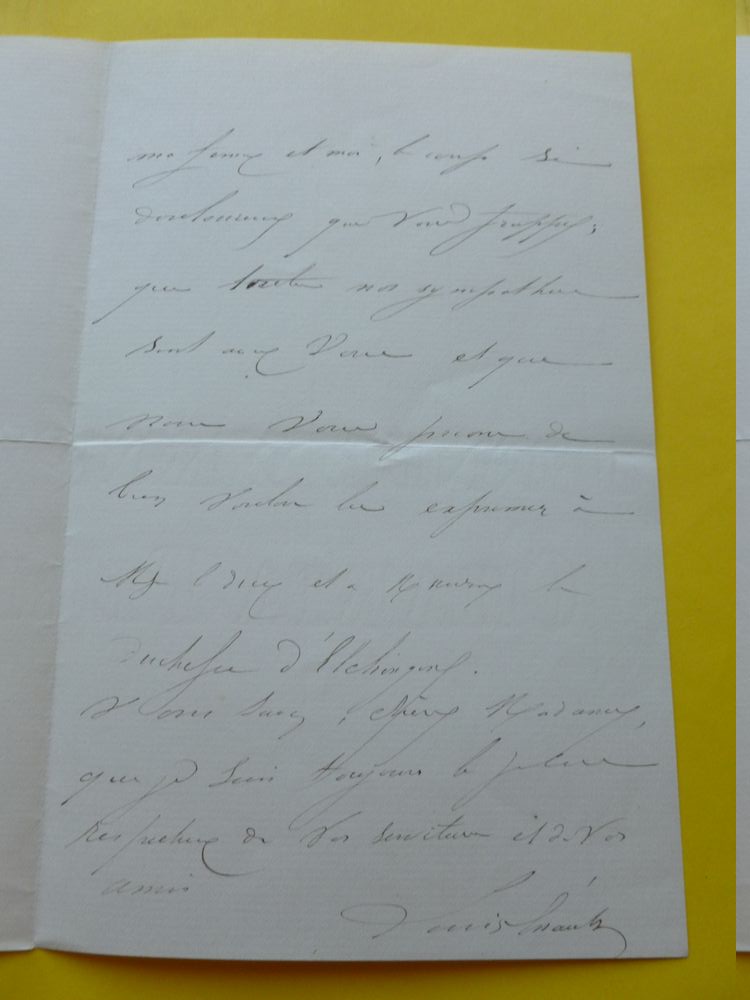 ma femme et moi, le coup si
douloureux qui vous frappe,
que toutes nos sympathies
sont avec Vous et que
nous Vous prions de
bien vouloir les exprimer à
Mr le duc et à Madame la
duchesse d'Elchingen.
Vous savez, chère Madame,
que je suis toujours le plus
respectueux de Vos serviteurs et de Vos
amis
Louis Énault